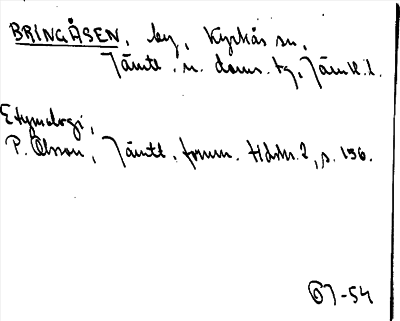 BRINGÅSEN, by, Kyrkås sn,
Jämtl. n. doms. tg, Jämtl. l.
Etymologi,
P. Olsson, Jämtl. fornm. Hdskr. 2, s. 156.
-54